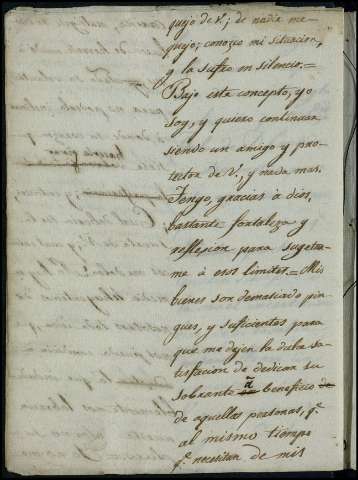 quejo de V.; de nadie me
quejo; conozco mi situacion,
y la sufro en silencio.=
Bajo este concepto, yo
soy, y quiero continuar
siendo un amigo y pro-
tector de V., y nada mas.
Tengo, gracias à dios,
bastante fortaleza y
reflexion para sugetar-
me à esos limites.= Mis
bienes son demasiado pin-
gues, y suficientes para
que me dejen la dulce sa-
tisfaccion de dedicar su
sobrante à beneficio
de aquellas personas, q.e
al mismo tiempo
q.e necesitan de mis